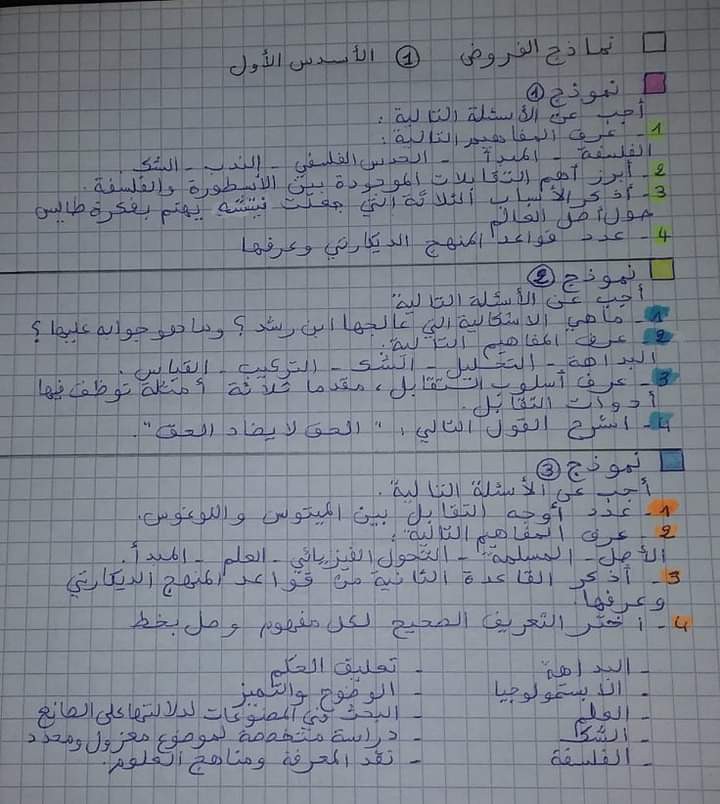 نماذج الفروض ① الأسدس الأول
نموذج ①
أجب عن الأسئلة التالية:
1- عرف المفاهيم التالية:
الفلسفة - المبدأ - الحدس الفلسفي - الندب - الشك
2- أبرز أهم التقابلات الموجودة بين الأسطورة والفلسفة.
3- أذكر الأسباب الثلاثة التي جعلت نيتشه يهتم بفكرة طاليس
حول أصل العالم
4- عدد قواعد المنهج الديكارتي وعرفها
نموذج ②
أجب عن الأسئلة التالية
1- ماهي الاشكالية التي عالجها ابن رشد؟ وما هو جوابه عليها؟
2- عرف المفاهيم التالية:
البداهة - التحليل - الشك - التركيب - القياس.
3- عرف أسلوب التقابل، مقدما ثلاثة أمثلة توظف فيها
أدوات التقابل.
4- اشرح القول التالي: "الحق لا يضاد الحق".
نموذج ③
أجب عن الأسئلة التالية.
1- عدد أوجه التقابل بين الميتوس واللوغوس.
2- عرف المفاهيم التالية:
الأصل - المسلمة - التحول الفيزيائي - العلم - المبدأ.
3- أذكر القاعدة الثانية من قواعد المنهج الديكارتي
وعرفها.
4- اختر التعريف الصحيح لكل مفهوم وصل بخط
- البداهة - تعليق الحكم
- الابستمولوجيا - الوضوح والتميز
- العلم - البحث في المصنوعات لدلالتها على الصانع
- الشك - دراسة متخصصة لموضوع معزول ومحدد
- الفلسفة - نقد المعرفة ومناهج العلوم.